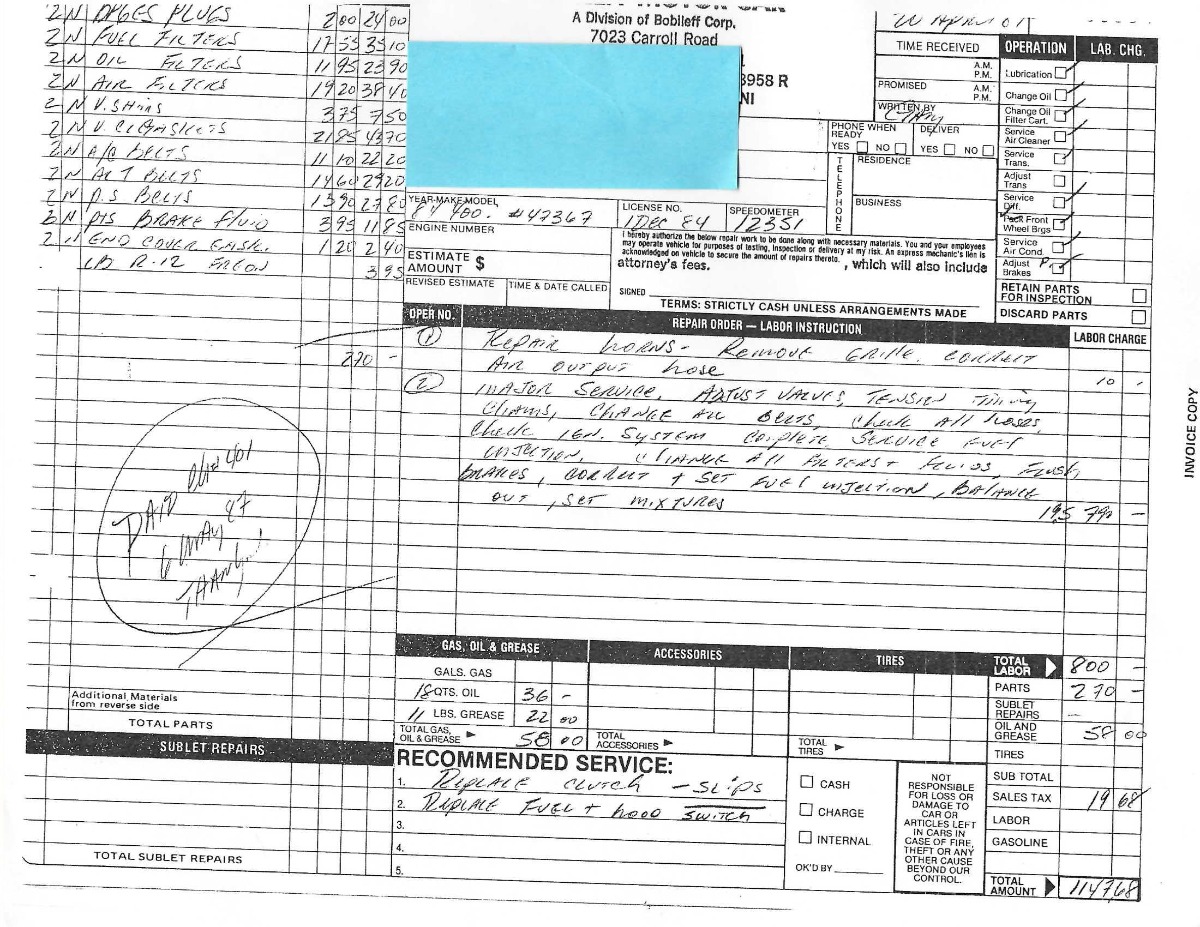 A Division of Bobileff Corp.
7023 Carroll Road
3958 R
NI
2 N FUEL FILTERS 17 55 35 10
2 N OIL FILTERS 11 95 23 90
2 N AIR FILTERS 19 20 38 40
2 N V. SHIMS 3 75 7 50
2 N V. C. GASKETS 21 85 43 70
2 N A/C BELTS 11 10 22 20
2 N ALT BELTS 14 60 29 20
2 N P.S BELTS 13 90 27 80
3 N PTS BRAKE FLUID 3 95 11 85
2 N END COVER GASK. 1 20 2 40
R-12 FREON 3 95
270 -
PAID
6 MAY 87
Additional Materials
from reverse side
TOTAL PARTS
SUBLET REPAIRS
TOTAL SUBLET REPAIRS
TIME RECEIVED
A.M.
P.M.
PROMISED
A.M.
P.M.
WRITTEN BY
PHONE WHEN READY
YES NO
DELIVER
YES NO
TELEPHONE
RESIDENCE
BUSINESS
OPERATION LAB. CHG.
Lubrication
Change Oil
Change Oil
Filter Cart.
Service
Air Cleaner
Service
Trans.
Adjust
Trans
Service
Diff.
Pack Front
Wheel Brgs
Service
Air Cond.
Adjust
Brakes
RETAIN PARTS
FOR INSPECTION
DISCARD PARTS
YEAR-MAKE-MODEL
84 400. #47367
LICENSE NO.
1 DEC 84
SPEEDOMETER
12351
ENGINE NUMBER
ESTIMATE
AMOUNT $
REVISED ESTIMATE TIME & DATE CALLED
I hereby authorize the below repair work to be done along with necessary materials. You and your employees
may operate vehicle for purposes of testing, inspection or delivery at my risk. An express mechanic's lien is
acknowledged on vehicle to secure the amount of repairs thereto. , which will also include
attorney's fees.
SIGNED
TERMS: STRICTLY CASH UNLESS ARRANGEMENTS MADE
OPER NO. REPAIR ORDER — LABOR INSTRUCTION LABOR CHARGE
1 REPAIR HORNS - REMOVE GRILLE. CORRECT
AIR OUTPUT HOSE 10 -
2 MAJOR SERVICE, ADJUST VALVES, TENSION TIMING
CHAINS, CHANGE ALL BELTS, CHECK ALL HOSES,
CHECK IGN. SYSTEM COMPLETE SERVICE FUEL
INJECTION, CHANGE ALL FILTERS + FLUIDS, FLUSH
BRAKES, CORRECT + SET FUEL INJECTION, BALANCE
OUT, SET MIXTURES 19.5 790 -
GAS, OIL & GREASE ACCESSORIES TIRES
GALS. GAS
18 QTS. OIL 36 -
11 LBS. GREASE 22 00
TOTAL GAS,
OIL & GREASE 58 00
TOTAL
ACCESSORIES
TOTAL
TIRES
RECOMMENDED SERVICE:
1. REPLACE CLUTCH - SLIPS
2. REPLACE FUEL + HOOD SWITCH
3.
4.
5.
CASH
CHARGE
INTERNAL
OK'D BY
NOT
RESPONSIBLE
FOR LOSS OR
DAMAGE TO
CAR OR
ARTICLES LEFT
IN CARS IN
CASE OF FIRE,
THEFT OR ANY
OTHER CAUSE
BEYOND OUR
CONTROL.
TOTAL
LABOR 800 -
PARTS 270 -
SUBLET
REPAIRS -
OIL AND
GREASE 58 00
TIRES
SUB TOTAL
SALES TAX 19 68
LABOR
GASOLINE
TOTAL
AMOUNT 1147,68
INVOICE COPY